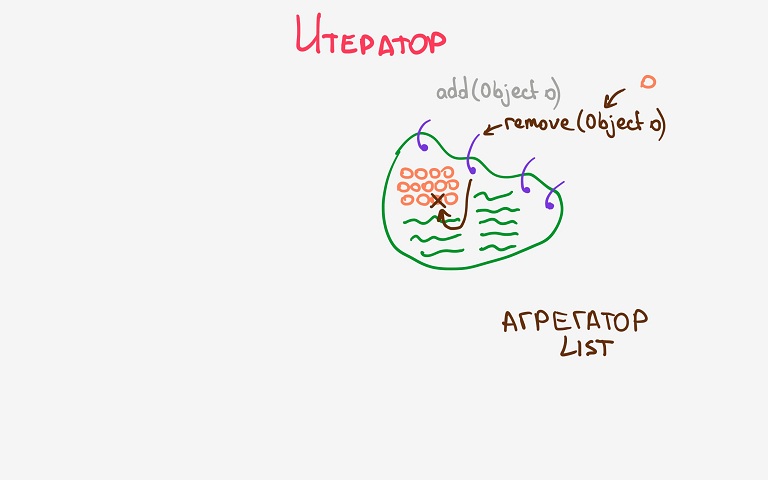 Итератор
add(Object o)
remove(Object o)
АГРЕГАТОР
LIST